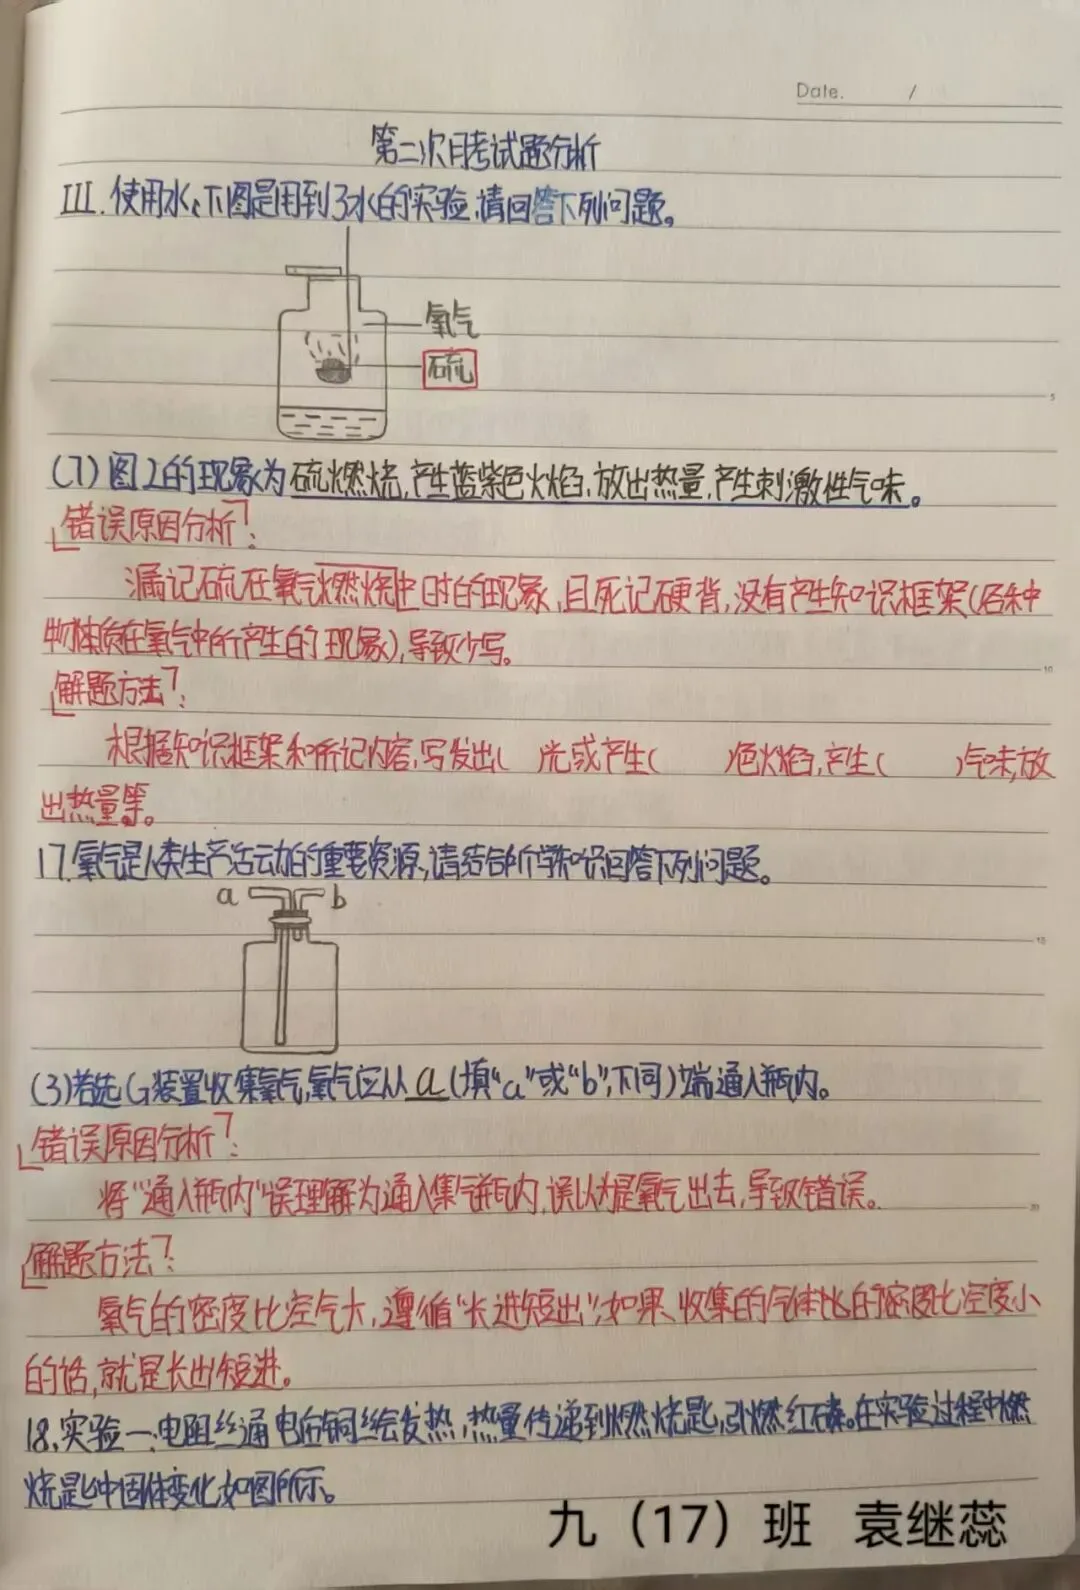 Date. /
第二次月考试题分析
III.使用水:下图是用到了水的实验,请回答下列问题。
氧气
硫
(7)图2的现象为硫燃烧,产生蓝紫色火焰,放出热量,产生刺激性气味。
5
「错误原因分析」:
漏记硫在氧气燃燃烧中时的现象,且死记硬背,没有产生知识框架(各种
物质在氧气中所产生的现象),导致少写。
10
「解题方法」:
根据知识框架和所记内容,写发出( )光或产生( )色火焰,产生( )气味,放
出热量等。
17.氧气是人类生产活动的重要资源,请结合所学知识回答下列问题。
a b
15
(3)若选G装置收集氧气,氧气应从a(填“a”或“b”,下同)端通入瓶内。
「错误原因分析」:
将“通入瓶内”误理解为通入集气瓶内,误以为是氧气出去,导致错误。
20
「解题方法」:
氧气的密度比空气大,遵循“长进短出”;如果收集的气体比的密度比空度小
的话,就是长出短进。
18.实验一:电阻丝通电后铜丝会发热,热量传递到燃烧匙,引燃红磷。在实验过程中燃
烧匙中固体变化如图所示。
九(17)班 袁继蕊